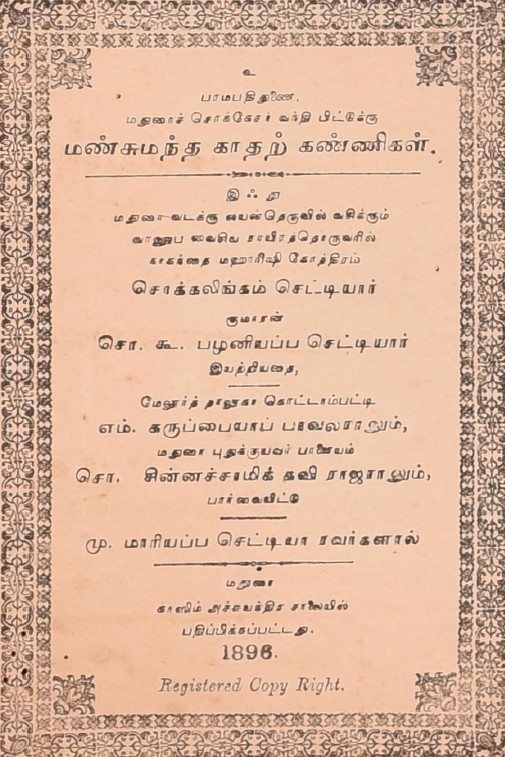 உ
பாமபதிதுணை.
மதுரைச் சொக்கேசர் வந்தி பிட்டுக்கு
மண்சுமந்த காதற் கண்ணிகள்.
இஃது
மதுரை வடக்கு வெளிவீதியில் வசிக்கும்
சொக்கலிங்கம் செட்டியார்
குமாரன்
சொ. கூ. பழனியப்ப செட்டியார்
இயற்றியதை,
மேலூர்த் தாலூகா கொட்டாம்பட்டி
எம். கருப்பையாப் பாவலராலும்,
மதுரை புதுக்குயவர் பாளையம்
சொ. சின்னச்சாமிக் கவி ராஜராலும்,
பார்வையிட்டு
மு. மாரியப்ப செட்டியா ரவர்களால்
மதுரை
காஸிம் அச்சியந்திர சாலையில்
பதிப்பிக்கப்பட்டது.
1896.
Registered Copy Right.